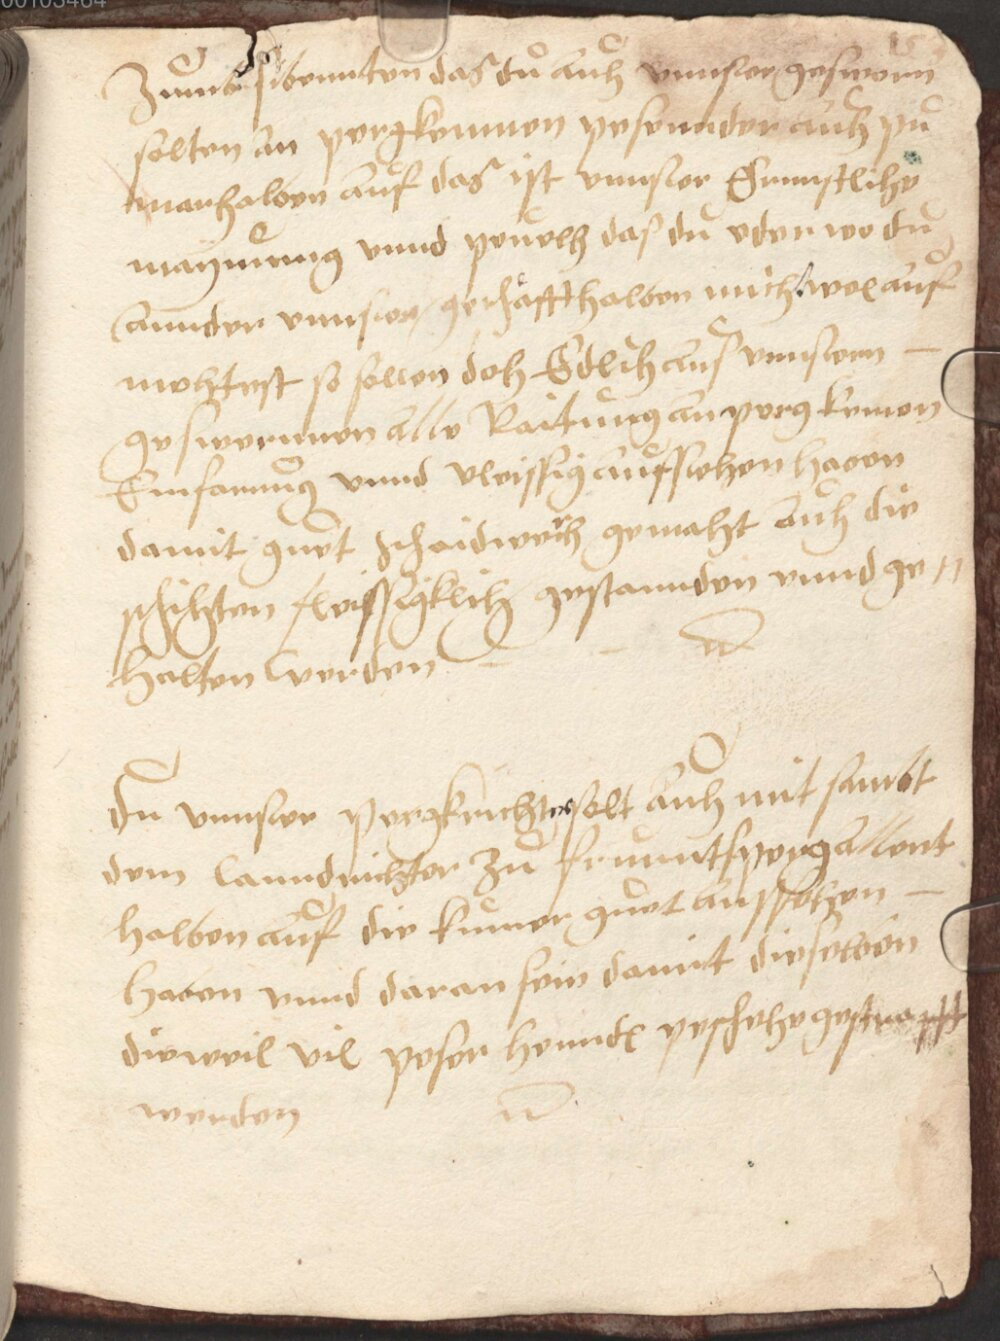 Zumb sibennten das du auch unnser geswern
solten an pergkennen pesennder auch pu
marhalben auf das ist unnser Ernnstliche
maynung unnd pevelh das du oder wo du
annder unnser geschäfft halben nicht wol auf
mochtest so sollen doh Edlich aus unnsern
geswornnen alle Raittung an perg kemen
Einfarung unnd vleissig aufsehen haben
damit guet schaidwerch gemacht auch die
schichten fleissigklich gestannden unnd ge
halten werden

Du unnser pergkrichter solt auch mit sambt
dem lanndrichter zu frunntsperg allent
halben auf die kumer guet aufsehen
haben unnd daran sein damit dieselben
dieweil vil peser henndl peschehe gestrafft
werden